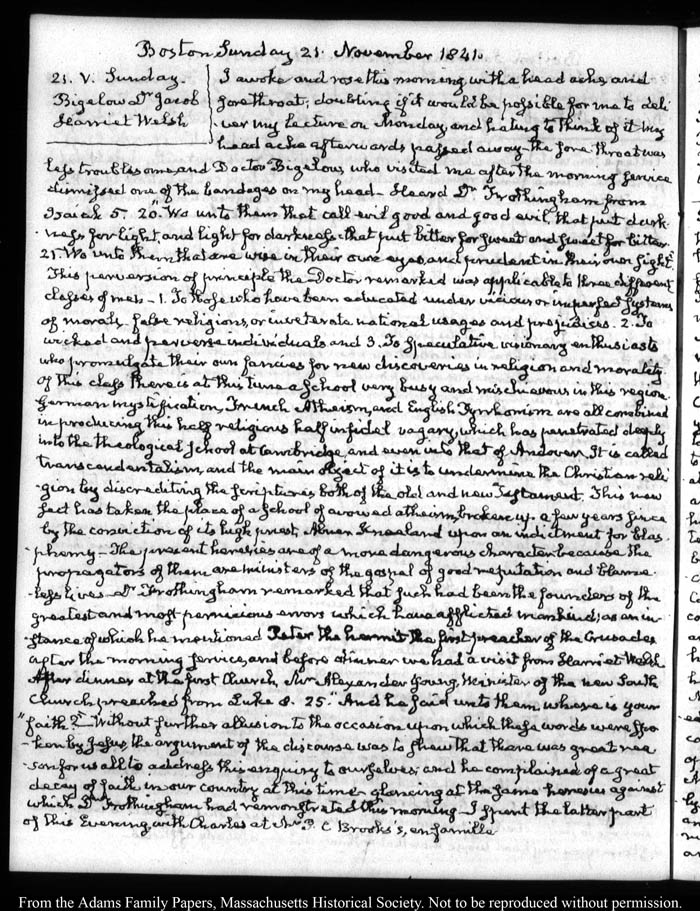 Boston Sunday 21. November 1841.
21. V. Sunday.
Bigelow Dr Jacob
Harriet Welsh
I awoke and rose this morning with a head ache, and
sore throat; doubting if it would be possible for me to deli
ver my Lecture on Monday, and hating to think of it my
head ache afterwards passed away the sore throat was
less troublesome and Doctor Bigelow, who visited me after the morning service
dismissed one of the bandages on my head. Heard Dr Frothingham from
Isaiah 5. 20. "Wo unto them that call evil good and good evil, that put dark
-ness for light, and light for darkness: that put bitter for sweet and sweet for bitter.
21. Wo unto them that are wise in their own eyes, and prudent in their own sight."
This perversion of principle the Doctor remarked was applicable to three different
classes of men – 1. To those who have been educated under vicious or imperfect systems
of morals, false religions, or inveterate national usages and prejudices. 2. To
wicked and perverse individuals and 3. To speculative, visionary enthusiasts
who promulgate their own fancies for new discoveries in religion and morality.
Of this class there is at this time a School very busy and mischievous in this region.
German mystification, French Atheism, and English Pyrrhonism are all combined
in producing this half religious half infidel vagary, which has penetrated deeply
into the theological School at Cambridge, and even into that of Andover. It is called
transcendentalism, and the main object of it is to undermine the Christian reli
-gion by discrediting the Scriptures both of the old and new Testament. This new
sect has taken the place of a School of avowed atheism, broken up a few years since
by the conviction of its high priest, Abner Kneeland upon an indictment for blas
-phemy – The present heresies are of a more dangerous character because the
propagators of them are ministers of the gospel of good reputation and blame
-less lives. Dr Frothingham remarked that such had been the founders of the
greatest and most pernicious errors which have afflicted mankind; as an in-
-stance of which he mentioned Peter the hermit the first preacher of the Crusades
After the morning service, and before dinner we had a visit from Harriet Welsh
After dinner at the first Church, Mr Alexander Young, Minister of the new South
Church, preached from Luke 8. 25. "And he said unto them, where is your
"faith?" Without further allusion to the occasion upon which these words were spo
-ken by Jesus, the argument of the discourse was to shew that there was great rea
-son for us all to address this enquiry to ourselves; and he complained of a great
decay of faith in our country at this time glancing at the same heresies against
which Dr Frothingham had remonstrated this morning. I spent the latter part
of this Evening, with Charles at Mr P. C Brooks's, en famille
From the Adams Family Papers, Massachusetts Historical Society. Not to be reproduced without permission.